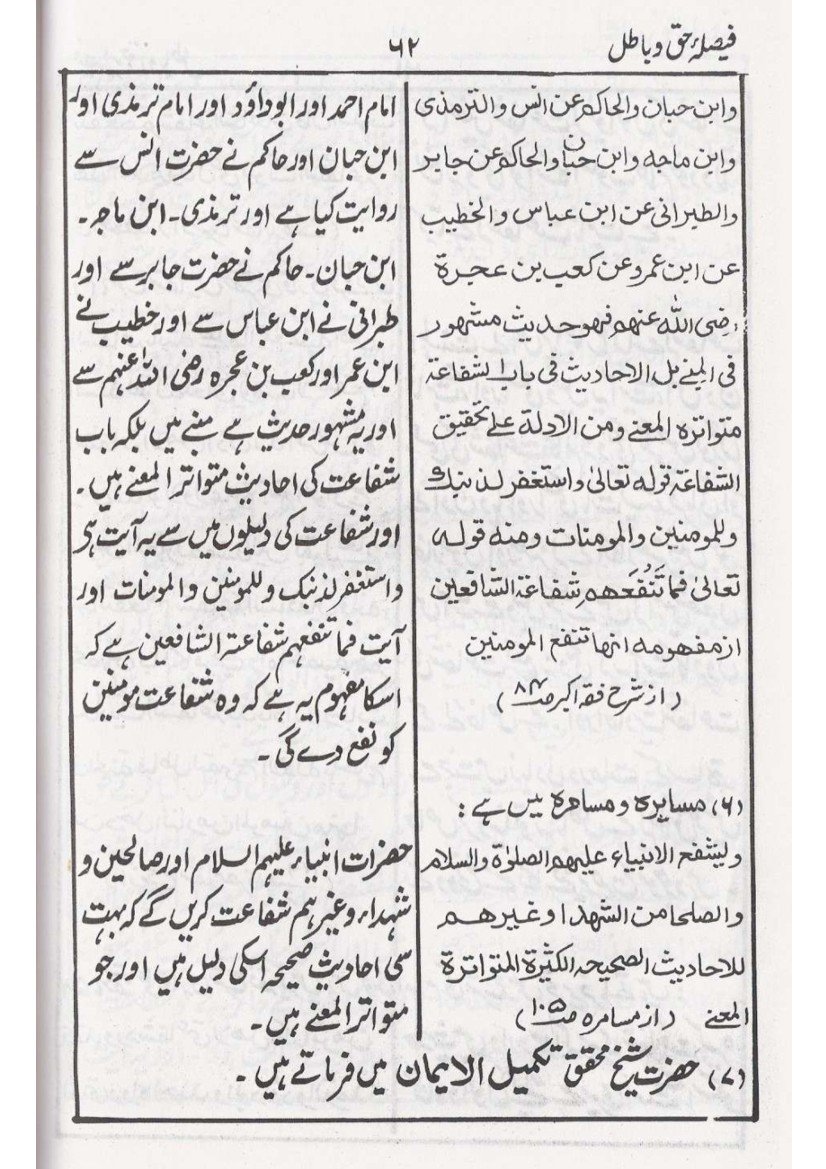 فیصلۂ حق و باطل
۶۲
وابن حبان والحاکم عن انس والترمذی
وابن ماجه وابن حبان والحاکم عن جابر
والطبرانی عن ابن عباس والخطیب
عن ابن عمر وعن کعب بن عجرة
رضی اللہ عنهم فهو حدیث مشهور
فی المبنے بل الاحادیث فی باب الشفاعة
متواترہ المعنے ومن الادلة علے تحقیق
الشفاعة قوله تعالیٰ واستغفر لذنبک
وللمومنین والمومنات ومنه قوله
تعالیٰ فما تَنْفَعَهم شفاعة الشافعین
از مفهومه انها تنفع المومنین
(از شرح فقہ اکبر صـ۸۴)
(۶) مسایرہ و مسامرہ میں ہے :
ولیشفع الانبیاء علیهم الصلوٰة والسلام
والصلحا من الشهدا وغیرهم
للاحادیث الصحیحه الکثیرة المتواترة
المعنے (از مسامرہ صـ۱۰۵)
امام احمد اور ابوداؤد اور امام ترمذی اور
ابن حبان اور حاکم نے حضرت انس سے
روایت کیا ہے اور ترمذی۔ ابن ماجہ۔
ابن حبان۔ حاکم نے حضرت جابر سے اور
طبرانی نے ابن عباس سے اور خطیب نے
ابن عمر اور کعب بن عجرہ رضی اللہ عنہم سے
اور یہ مشہور حدیث ہے مبنے میں بلکہ باب
شفاعت کی احادیث متواتر المعنے ہیں۔
اور شفاعت کی دلیلوں میں سے یہ آیت ہی
واستغفر لذنبک وللمومنین والمومنات اور
آیت فما تنفعہم شفاعة الشافعین ہے کہ
اسکا مفہوم یہ ہے کہ وہ شفاعت مومنین
کو نفع دے گی۔
حضرات انبیاء علیہم السلام اور صالحین و
شہداء وغیرہم شفاعت کریں گے کہ بہت
سی احادیث صحیحہ اسکی دلیل ہیں اور جو
متواتر المعنے ہیں۔
(۷) حضرت شیخ محقق تکمیل الایمان میں فرماتے ہیں۔